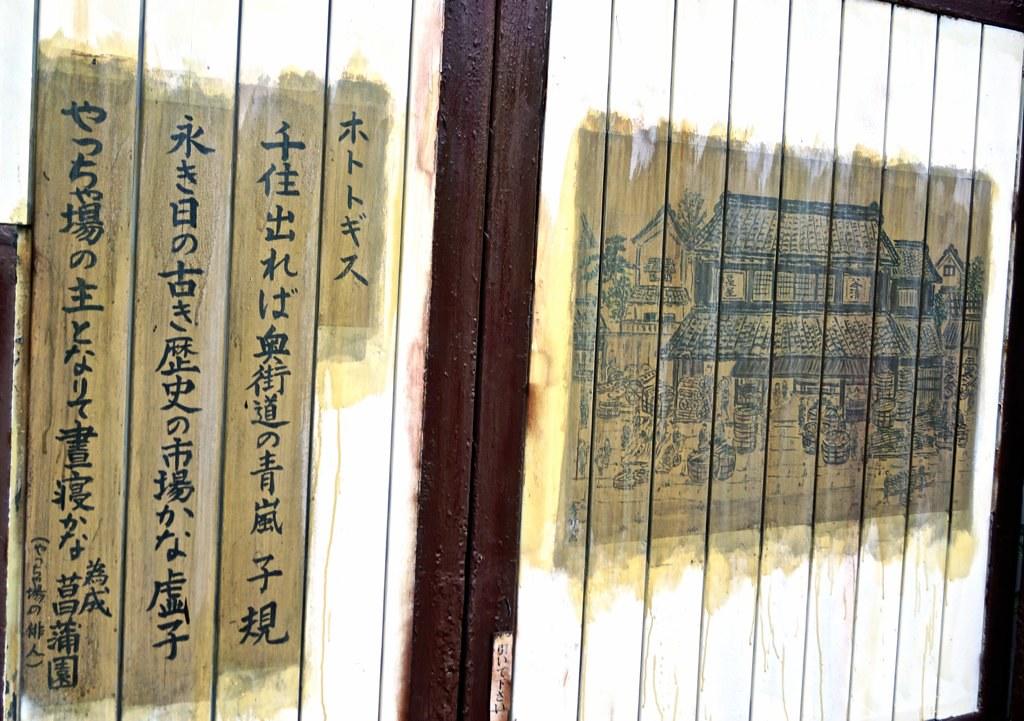 ホトトギス
千住出れば奥街道の青嵐 子規
永き日の古き歴史の市場かな 虚子
やっちゃ場の主となりて晝寝かな 為成 菖蒲園
(やっちゃ場の俳人)
引いて下さい